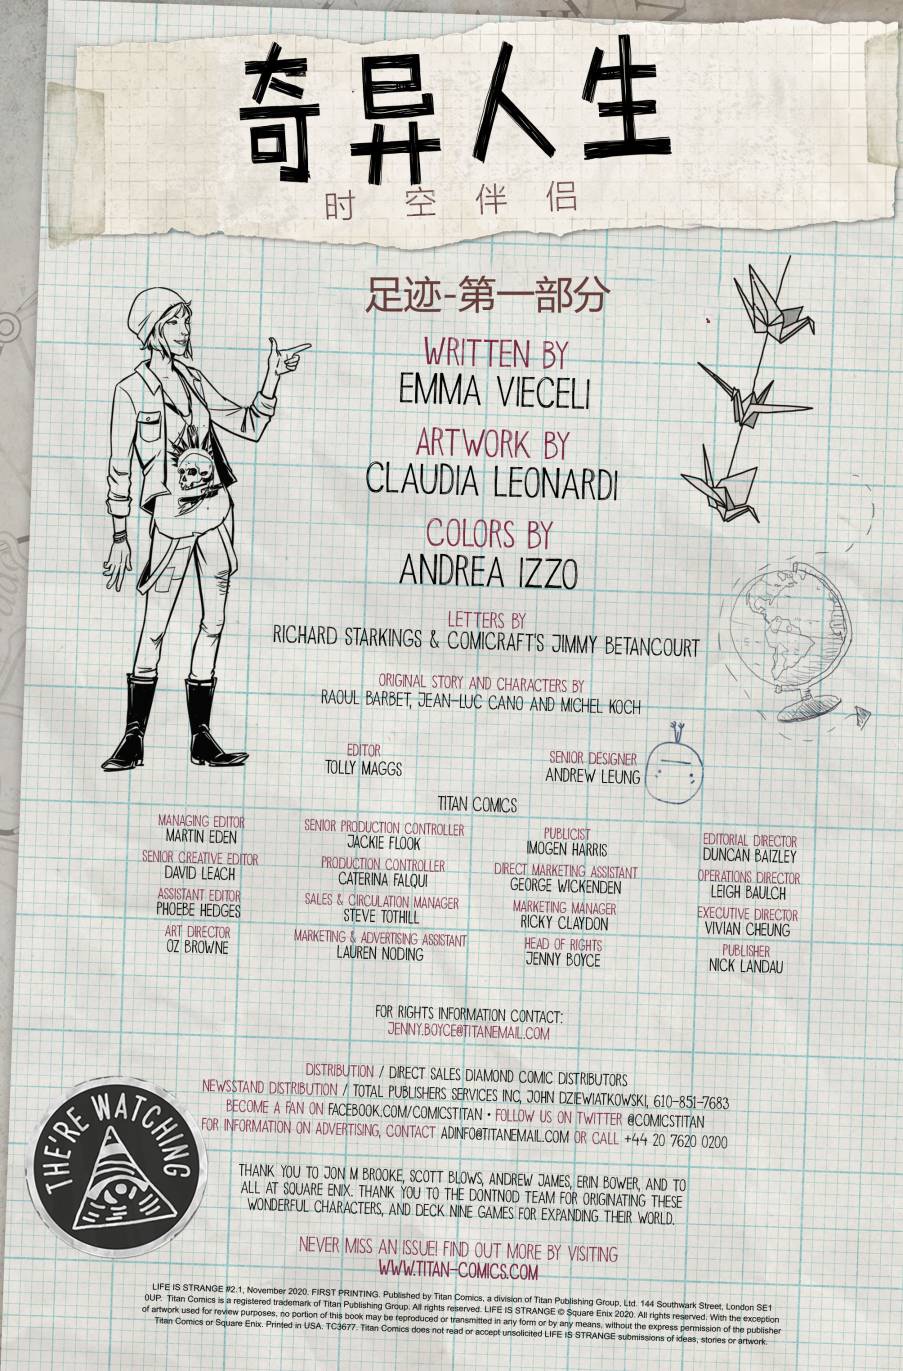 奇异人生
时空伴侣
足迹-第一部分
WRITTEN BY
EMMA VIECELI
ARTWORK BY
CLAUDIA LEONARDI
COLORS BY
ANDREA IZZO
LETTERS BY
RICHARD STARKINGS & COMICRAFT'S JIMMY BETANCOURT
ORIGINAL STORY AND CHARACTERS BY
RAOUL BARBET, JEAN-LUC CANO AND MICHEL KOCH
EDITOR
TOLLY MAGGS
SENIOR DESIGNER
ANDREW LEUNG
TITAN COMICS
MANAGING EDITOR
MARTIN EDEN
SENIOR CREATIVE EDITOR
DAVID LEACH
ASSISTANT EDITOR
PHOEBE HEDGES
ART DIRECTOR
OZ BROWNE
SENIOR PRODUCTION CONTROLLER
JACKIE FLOOK
PRODUCTION CONTROLLER
CATERINA FALQUI
SALES & CIRCULATION MANAGER
STEVE TOTHILL
MARKETING & ADVERTISING ASSISTANT
LAUREN NODING
PUBLICIST
IMOGEN HARRIS
DIRECT MARKETING ASSISTANT
GEORGE WICKENDEN
MARKETING MANAGER
RICKY CLAYDON
HEAD OF RIGHTS
JENNY BOYCE
EDITORIAL DIRECTOR
DUNCAN BAIZLEY
OPERATIONS DIRECTOR
LEIGH BAULCH
EXECUTIVE DIRECTOR
VIVIAN CHEUNG
PUBLISHER
NICK LANDAU
FOR RIGHTS INFORMATION CONTACT:
JENNY.BOYCE@TITANEMAIL.COM
DISTRIBUTION / DIRECT SALES DIAMOND COMIC DISTRIBUTORS
NEWSSTAND DISTRIBUTION / TOTAL PUBLISHERS SERVICES INC, JOHN DZIEWIATKOWSKI, 610-851-7683
BECOME A FAN ON FACEBOOK.COM/COMICSTITAN • FOLLOW US ON TWITTER @COMICSTITAN
FOR INFORMATION ON ADVERTISING, CONTACT ADINFO@TITANEMAIL.COM OR CALL +44 20 7620 0200
THEY'RE WATCHING
THANK YOU TO JON M BROOKE, SCOTT BLOWS, ANDREW JAMES, ERIN BOWER, AND TO
ALL AT SQUARE ENIX. THANK YOU TO THE DONTNOD TEAM FOR ORIGINATING THESE
WONDERFUL CHARACTERS, AND DECK NINE GAMES FOR EXPANDING THEIR WORLD.
NEVER MISS AN ISSUE! FIND OUT MORE BY VISITING
WWW.TITAN-COMICS.COM
LIFE IS STRANGE #2.1, November 2020. FIRST PRINTING. Published by Titan Comics, a division of Titan Publishing Group, Ltd. 144 Southwark Street, London SE1
0UP. Titan Comics is a registered trademark of Titan Publishing Group. All rights reserved. LIFE IS STRANGE © Square Enix 2020. All rights reserved. With the exception
of artwork used for review purposes, no portion of this book may be reproduced or transmitted in any form or by any means, without the express permission of the publisher
Titan Comics or Square Enix. Printed in USA. TC3677. Titan Comics does not read or accept unsolicited LIFE IS STRANGE submissions of ideas, stories or artwork.